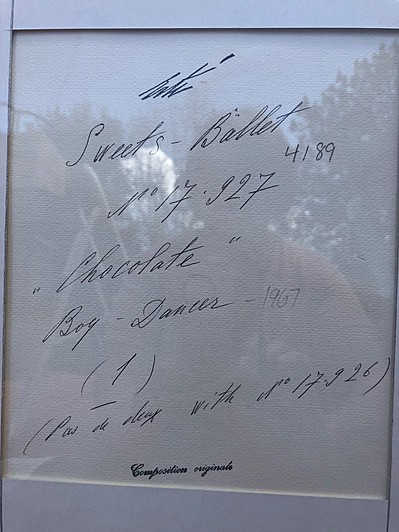 Erté
Sweets - Ballet
4189
Nº 17.927
"Chocolate"
Boy - Dancer - 1967
(1)
(Pas de deux with Nº 17.926)
Composition originale